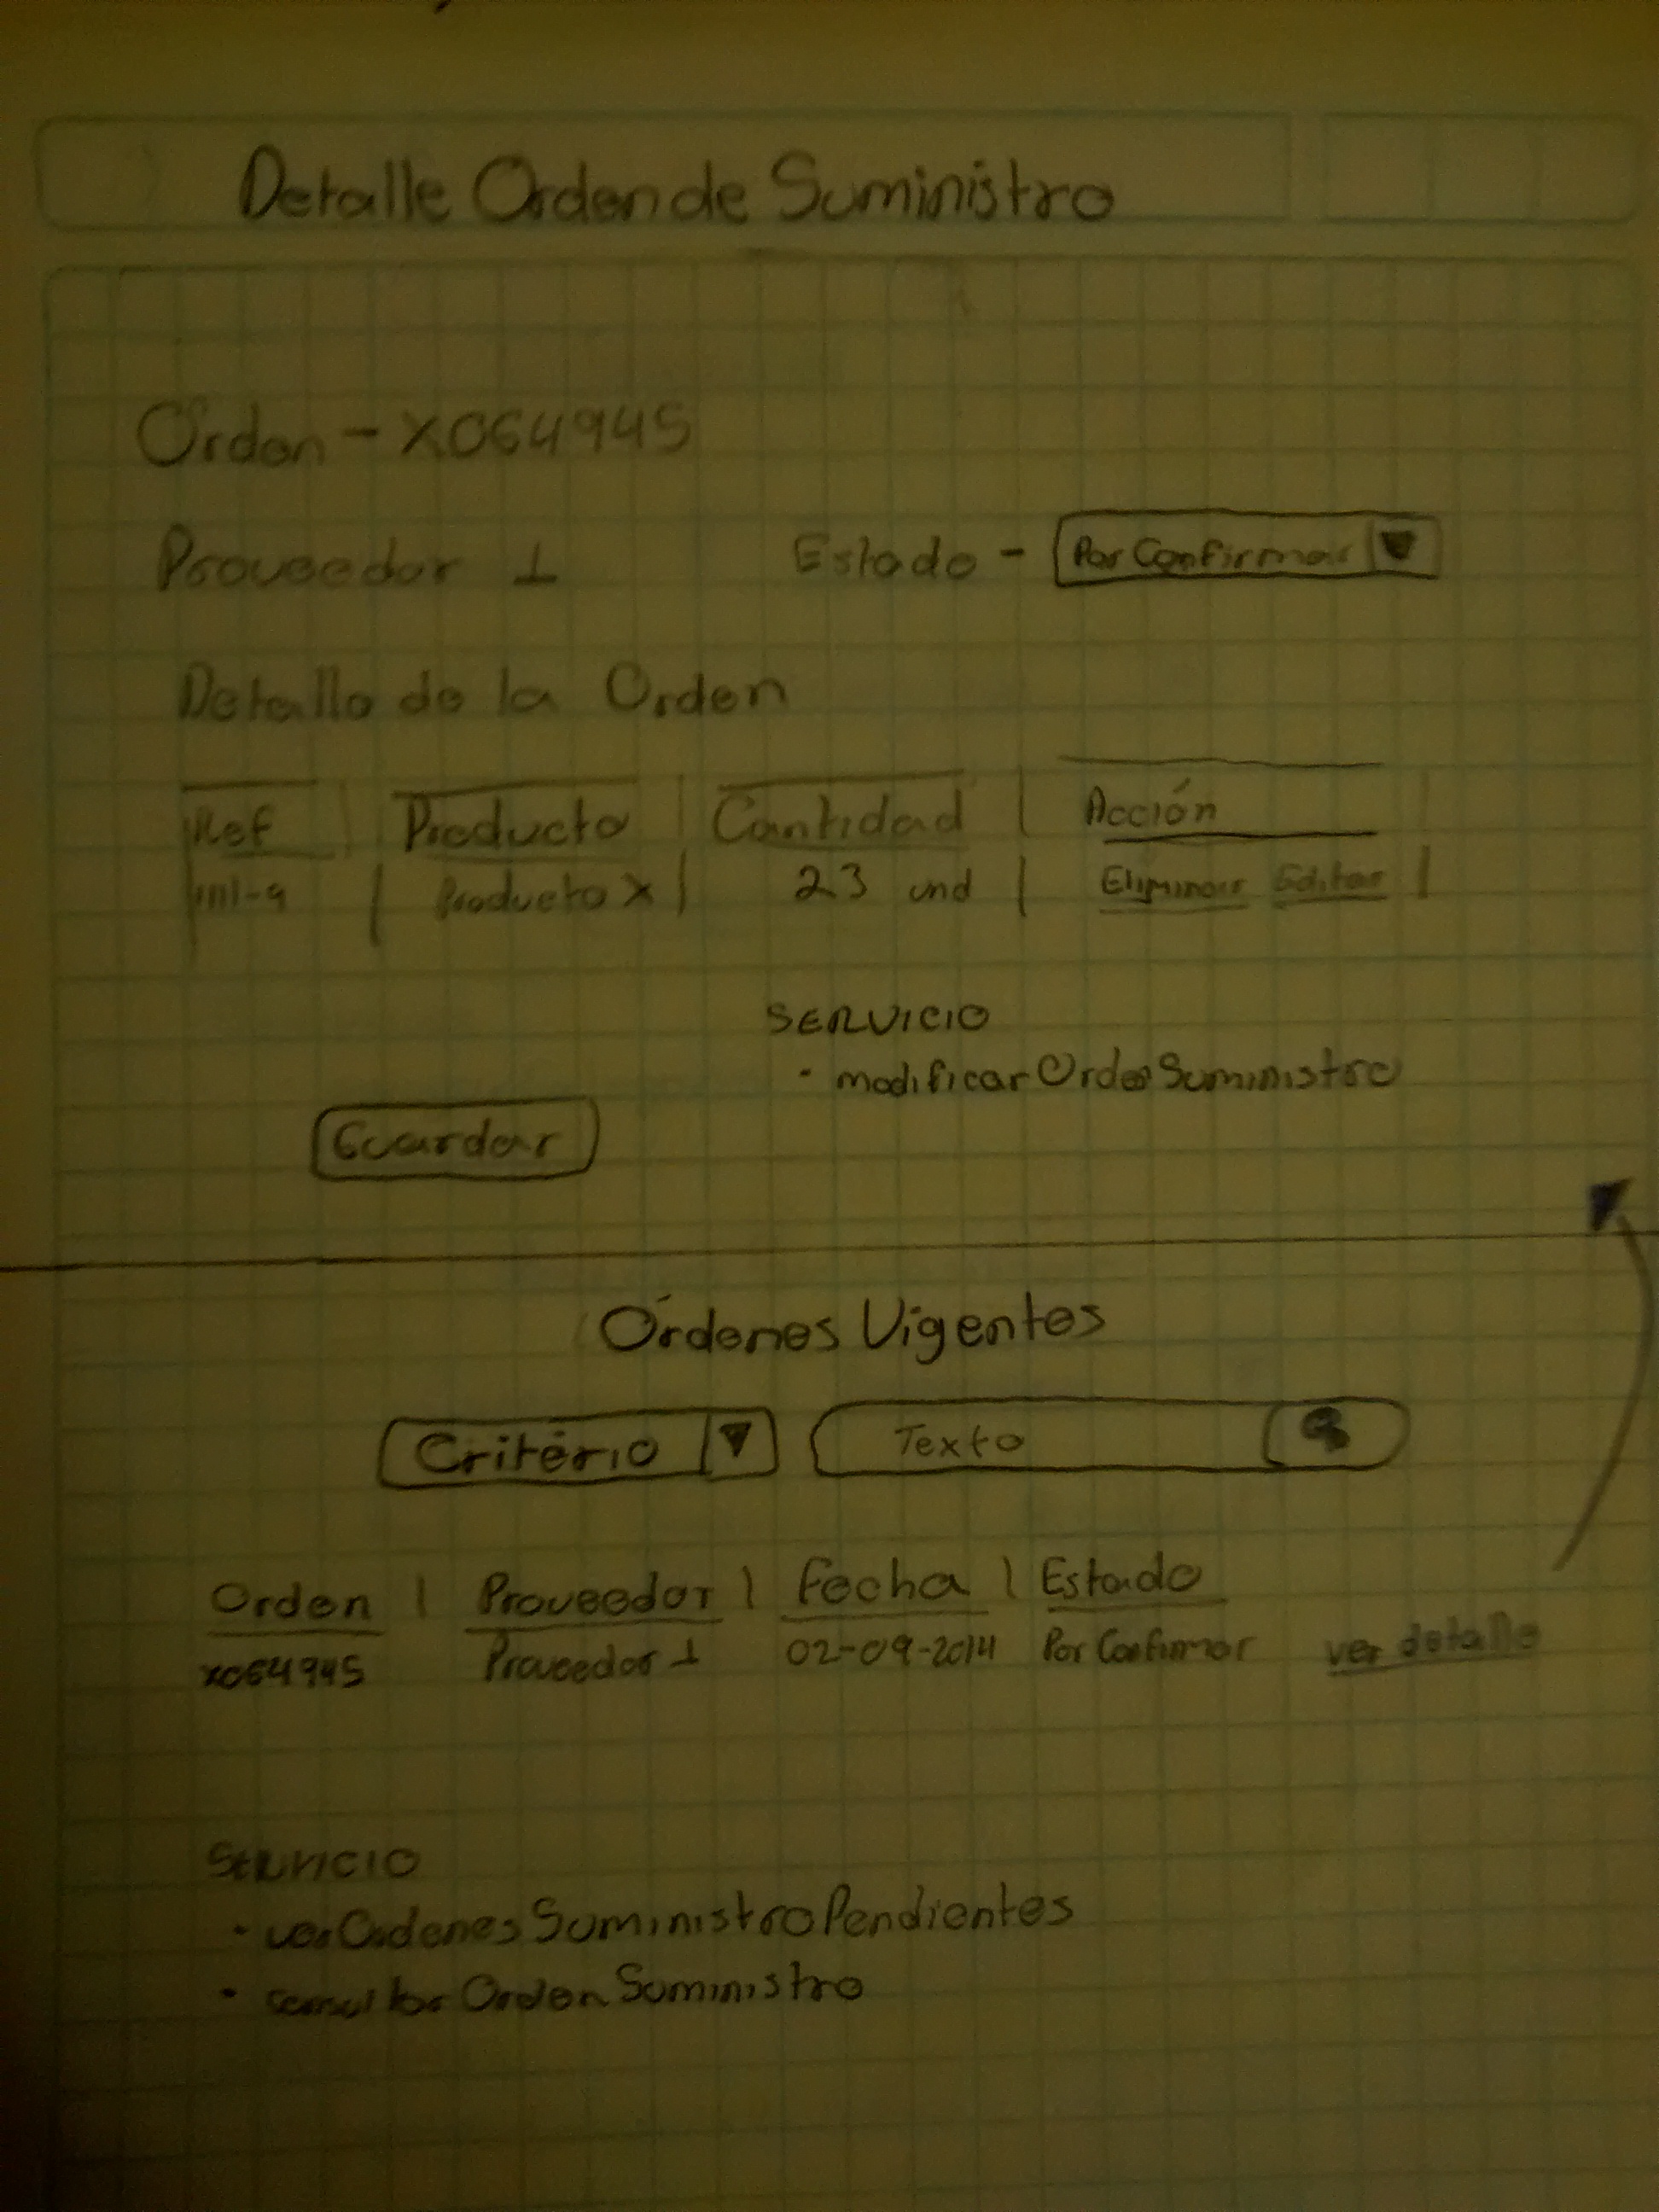 Detalle Orden de Suministro
Orden - X064945
Proveedor 1 Estado - Por Confirmar
Detalle de la Orden
Ref | Producto | Cantidad | Acción
1111-9 | Producto X | 23 und | Eliminar Editar |
SERVICIO
• modificarOrdenSuministro
Guardar
Órdenes Vigentes
Critério Texto
Orden | Proveedor | Fecha | Estado
X064945 Proveedor 1 02-09-2014 Por Confirmar ver detalle
SERVICIO
• verOrdenesSuministroPendientes
• consultarOrdenSuministro